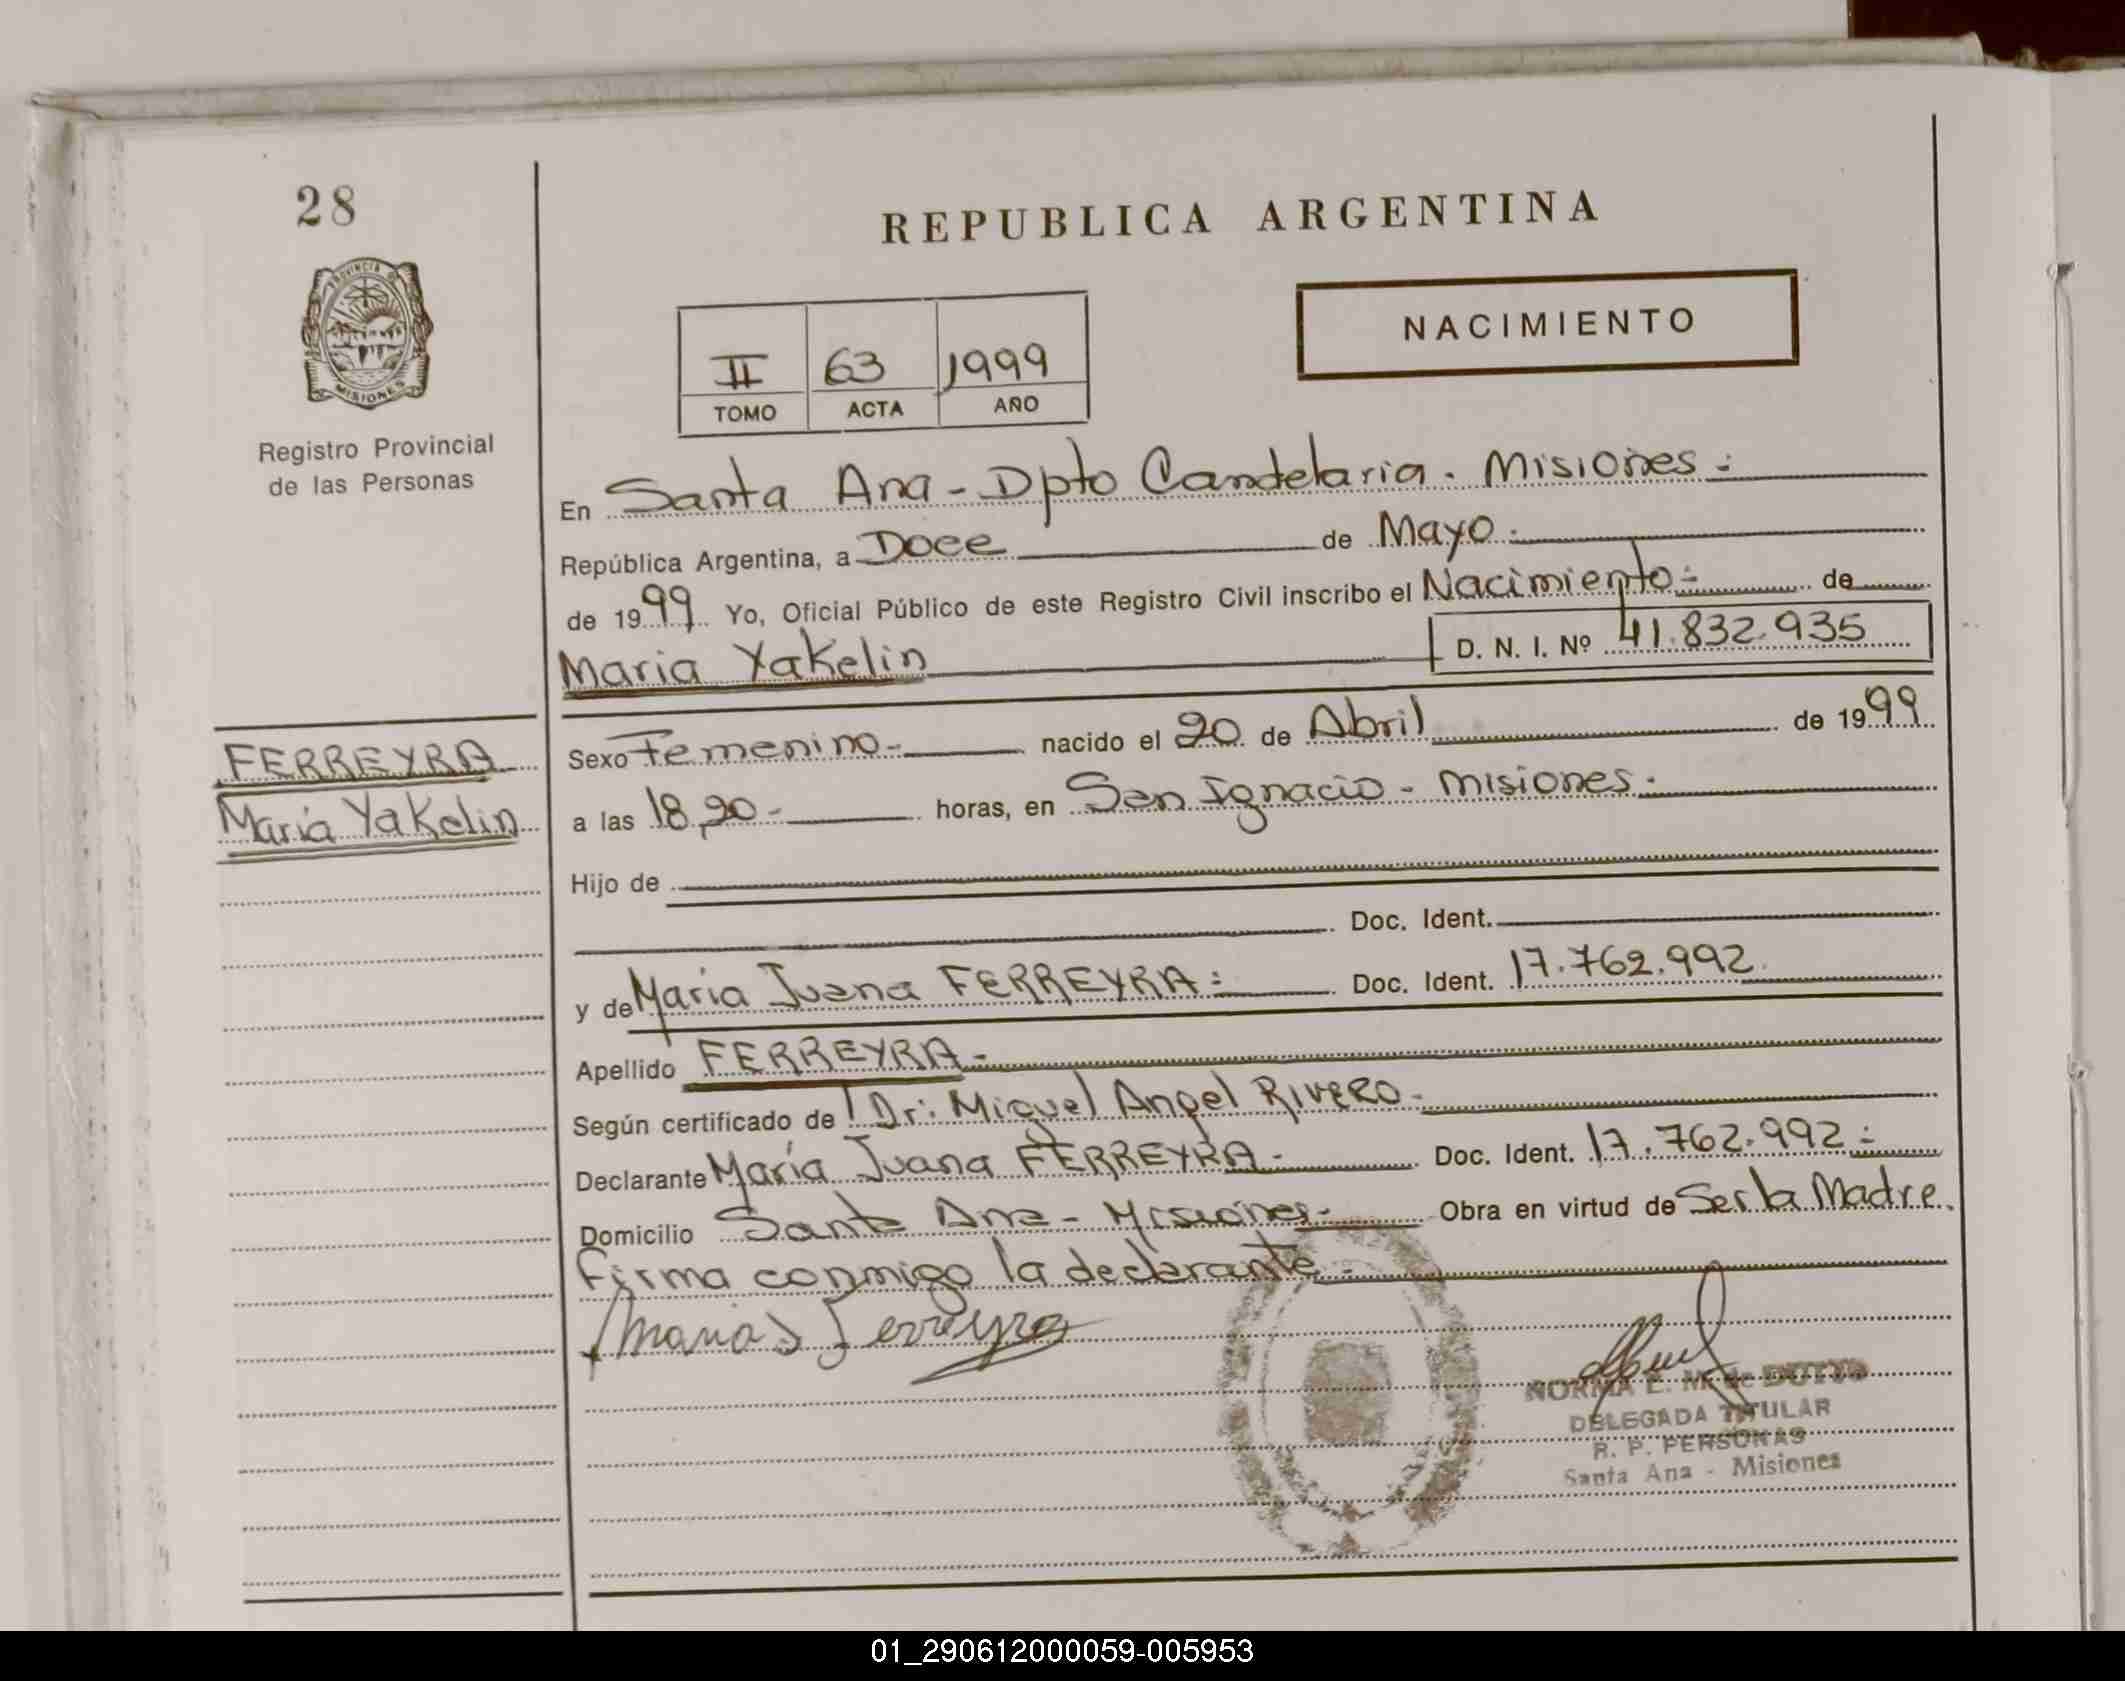 28
PROVINCIA DE
MISIONES
Registro Provincial
de las Personas
REPUBLICA ARGENTINA
NACIMIENTO
II 63 1999
TOMO ACTA AÑO
En Santa Ana - Dpto Candelaria. Misiones -
República Argentina, a Doce de Mayo -
de 1999 Yo, Oficial Público de este Registro Civil inscribo el Nacimiento - de
Maria Yakelin D. N. I. Nº 41.832.935
FERREYRA
María Yakelin
Sexo Femenino - nacido el 20 de Abril de 1999
a las 18,20 - horas, en San Ignacio - Misiones -
Hijo de
Doc. Ident.
y de María Juana FERREYRA - Doc. Ident. 17.762.992
Apellido FERREYRA -
Según certificado de Dr: Miguel Angel RIVERO -
Declarante María Juana FERREYRA - Doc. Ident. 17.762.992 -
Domicilio Santa Ana - Misiones - Obra en virtud de Ser la Madre.
Firma conmigo la declarante -
Maria J Ferreyra
NORMA E. M. de
DELEGADA TITULAR
R. P. PERSONAS
Santa Ana - Misiones
01_290612000059-005953